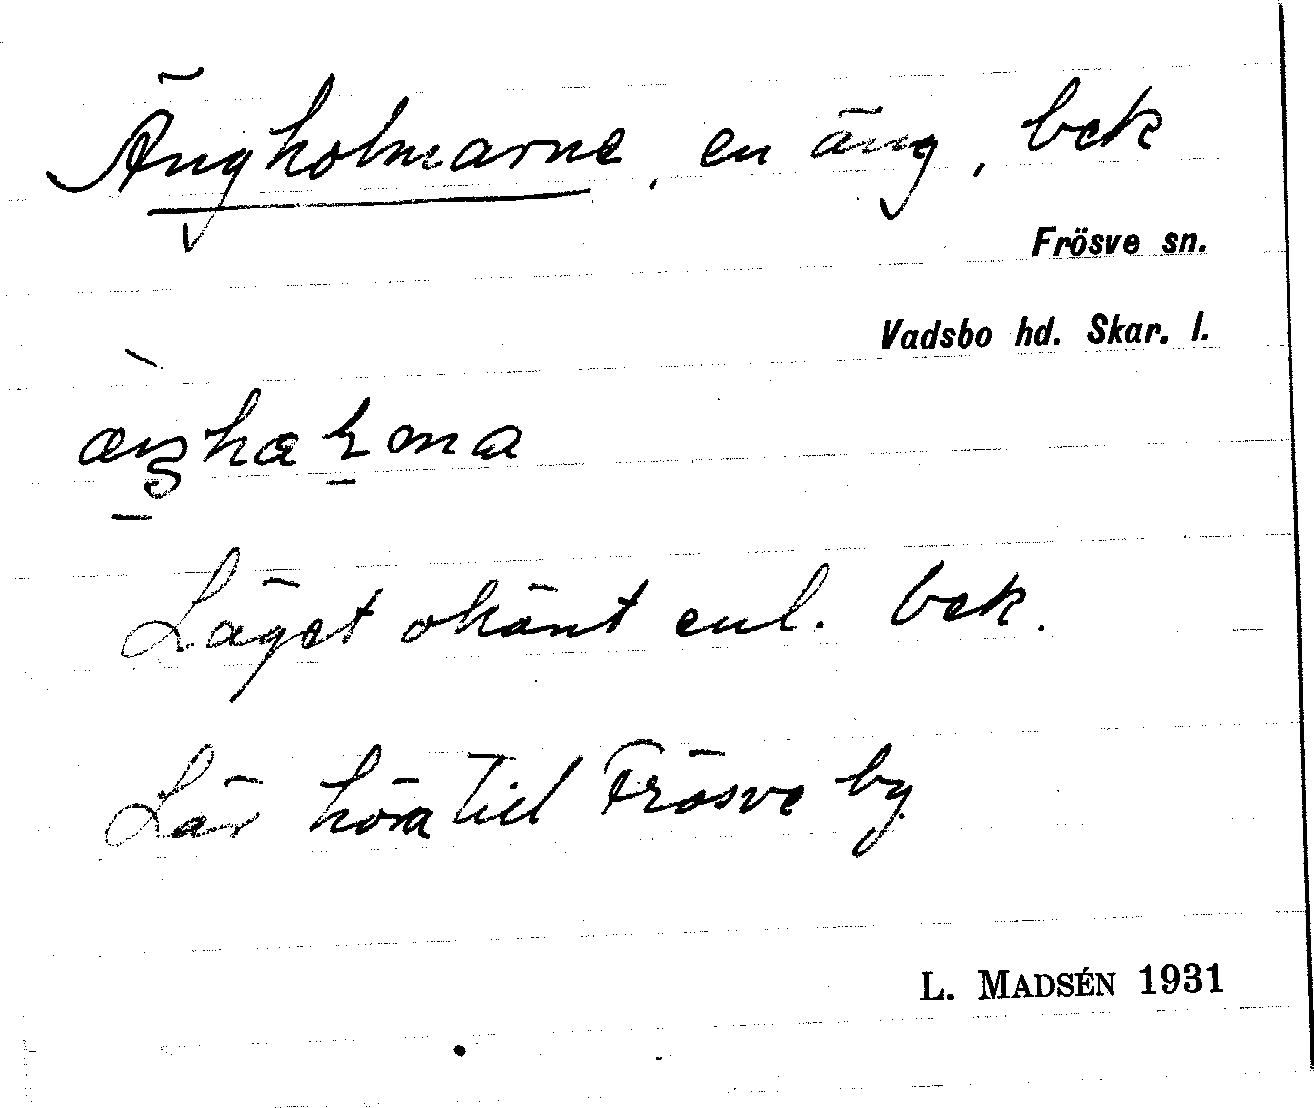 Ängholmarne, en äng, bek
Frösve sn.
Vadsbo hd. Skar. l.
Läget okänt enl. bek.
Lär höra till Frösve by.
L. MADSÉN 1931